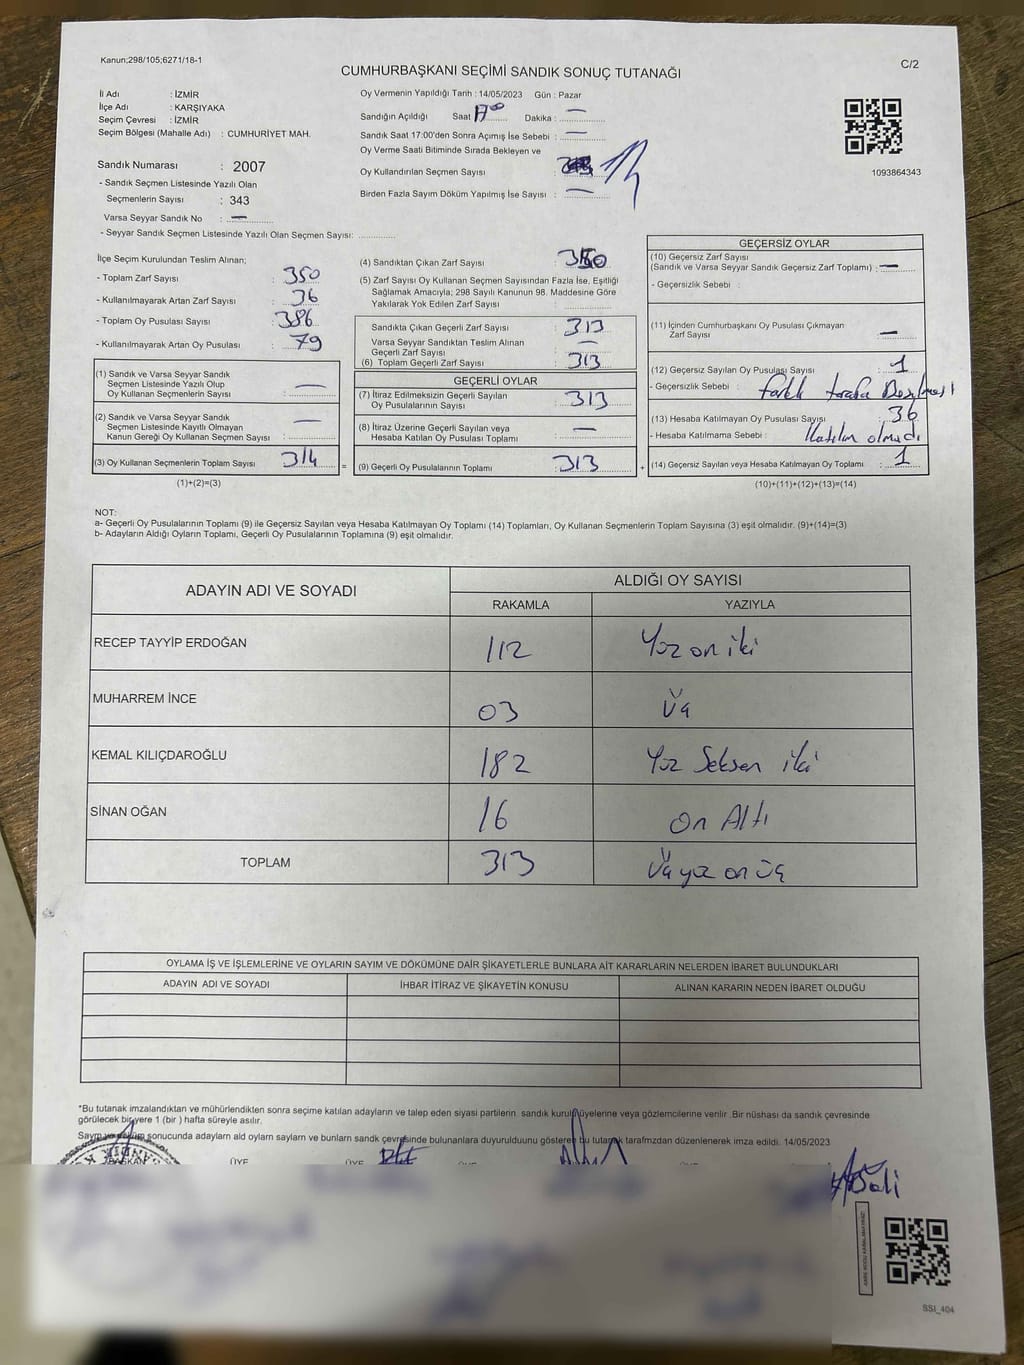 Kanun;298/105;6271/18-1
C/2
CUMHURBAŞKANI SEÇİMİ SANDIK SONUÇ TUTANAĞI
İl Adı : İZMİR
İlçe Adı : KARŞIYAKA
Seçim Çevresi : İZMİR
Seçim Bölgesi (Mahalle Adı) : CUMHURİYET MAH.
Sandık Numarası : 2007
- Sandık Seçmen Listesinde Yazılı Olan
Seçmenlerin Sayısı : 343
Varsa Seyyar Sandık No : —
- Seyyar Sandık Seçmen Listesinde Yazılı Olan Seçmen Sayısı:
Oy Vermenin Yapıldığı Tarih : 14/05/2023 Gün : Pazar
Sandığın Açıldığı Saat 17 00 Dakika : —
Sandık Saat 17:00'den Sonra Açımış İse Sebebi : —
Oy Verme Saati Bitiminde Sırada Bekleyen ve
Oy Kullandırılan Seçmen Sayısı :
Birden Fazla Sayım Döküm Yapılmış İse Sayısı : —
1093864343
İlçe Seçim Kurulundan Teslim Alınan;
- Toplam Zarf Sayısı : 350
- Kullanılmayarak Artan Zarf Sayısı : 36
- Toplam Oy Pusulası Sayısı : 386
- Kullanılmayarak Artan Oy Pusulası : 79
(1) Sandık ve Varsa Seyyar Sandık
Seçmen Listesinde Yazılı Olup
Oy Kullanan Seçmenlerin Sayısı : —
(2) Sandık ve Varsa Seyyar Sandık
Seçmen Listesinde Kayıtlı Olmayan
Kanun Gereği Oy Kullanan Seçmen Sayısı : —
(3) Oy Kullanan Seçmenlerin Toplam Sayısı : 314
(1)+(2)=(3)
(4) Sandıktan Çıkan Zarf Sayısı :
(5) Zarf Sayısı Oy Kullanan Seçmen Sayısından Fazla İse, Eşitliği
Sağlamak Amacıyla; 298 Sayılı Kanunun 98. Maddesine Göre
Yakılarak Yok Edilen Zarf Sayısı :
Sandıkta Çıkan Geçerli Zarf Sayısı : 313
Varsa Seyyar Sandıktan Teslim Alınan
Geçerli Zarf Sayısı : —
(6) Toplam Geçerli Zarf Sayısı : 313
GEÇERLİ OYLAR
(7) İtiraz Edilmeksizin Geçerli Sayılan
Oy Pusulalarının Sayısı : 313
(8) İtiraz Üzerine Geçerli Sayılan veya
Hesaba Katılan Oy Pusulası Toplamı : —
= (9) Geçerli Oy Pusulalarının Toplamı : 313 +
GEÇERSİZ OYLAR
(10) Geçersiz Zarf Sayısı
(Sandık ve Varsa Seyyar Sandık Geçersiz Zarf Toplamı) : —
- Geçersizlik Sebebi :
(11) İçinden Cumhurbaşkanı Oy Pusulası Çıkmayan
Zarf Sayısı : —
(12) Geçersiz Sayılan Oy Pusulası Sayısı : 1
- Geçersizlik Sebebi : farklı tarafa
(13) Hesaba Katılmayan Oy Pusulası Sayısı : 36
- Hesaba Katılmama Sebebi : Katılım olmadı
(14) Geçersiz Sayılan veya Hesaba Katılmayan Oy Toplamı : 1
(10)+(11)+(12)+(13)=(14)
NOT:
a- Geçerli Oy Pusulalarının Toplamı (9) ile Geçersiz Sayılan veya Hesaba Katılmayan Oy Toplamı (14) Toplamları, Oy Kullanan Seçmenlerin Toplam Sayısına (3) eşit olmalıdır. (9)+(14)=(3)
b- Adayların Aldığı Oyların Toplamı, Geçerli Oy Pusulalarının Toplamına (9) eşit olmalıdır.
ADAYIN ADI VE SOYADI
ALDIĞI OY SAYISI
RAKAMLA YAZIYLA
RECEP TAYYİP ERDOĞAN 112 Yüz on iki
MUHARREM İNCE 03 Üç
KEMAL KILIÇDAROĞLU 182 Yüz Seksen iki
SİNAN OĞAN 16 On Altı
TOPLAM 313 Üç yüz on üç
OYLAMA İŞ VE İŞLEMLERİNE VE OYLARIN SAYIM VE DÖKÜMÜNE DAİR ŞİKAYETLERLE BUNLARA AİT KARARLARIN NELERDEN İBARET BULUNDUKLARI
ADAYIN ADI VE SOYADI İHBAR İTİRAZ VE ŞİKAYETİN KONUSU ALINAN KARARIN NEDEN İBARET OLDUĞU
*Bu tutanak imzalandıktan ve mühürlendikten sonra seçime katılan adayların ve talep eden siyasi partilerin sandık kurulu üyelerine veya gözlemcilerine verilir .Bir nüshası da sandık çevresinde
görülecek bir yere 1 (bir ) hafta süreyle asılır.
Saym ve döküm sonucunda adayların ald oyların saylarn ve bunların sandk çevresinde bulunanlara duyurulduunu gösteren bu tutanak tarafmzdan düzenlenerek imza edildi. 14/05/2023
BAŞKAN ÜYE ÜYE ÜYE ÜYE
SSI_404